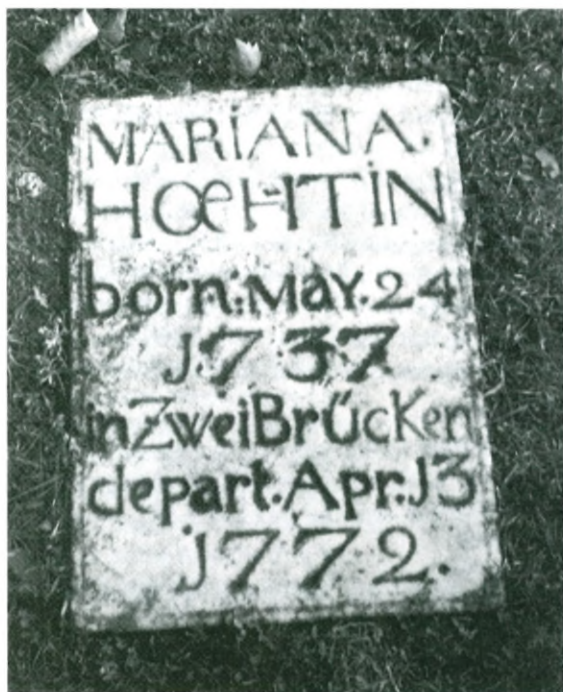 MARIANA.
HOEHTIN
born: MAY. 24
J737
in ZweiBrÜcKen
depart. Apr. J3
J772.